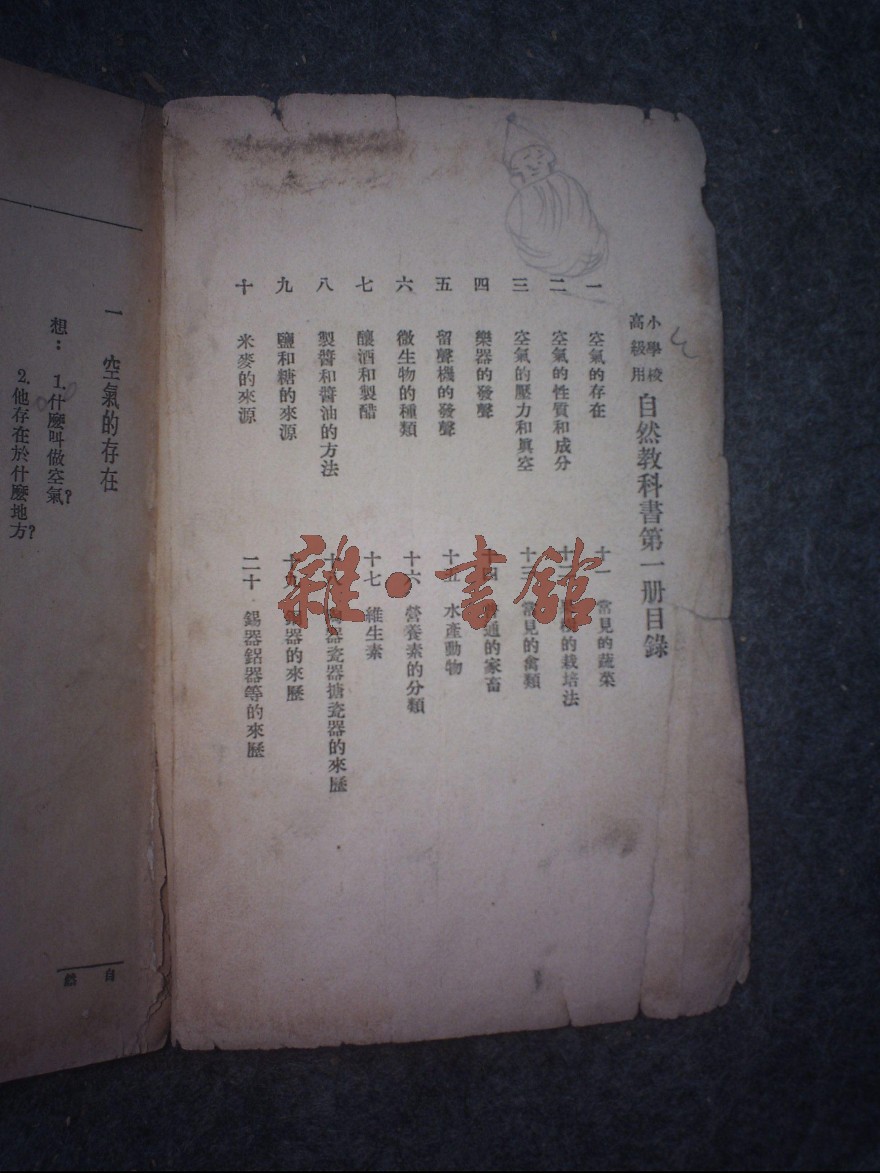 小學校
高級用
自然教科書第一册目錄
一 空氣的存在
二 空氣的性質和成分
三 空氣的壓力和眞空
四 樂器的發聲
五 留聲機的發聲
六 微生物的種類
七 釀酒和製醋
八 製醬和醬油的方法
九 鹽和糖的來源
十 米麥的來源
十一 常見的蔬菜
十二 的栽培法
十三 常見的禽類
十四 普通的家畜
十五 水產動物
十六 營養素的分類
十七 維生素
十八 陶器瓷器搪瓷器的來歷
十九 器的來歷
二十 錫器鋁器等的來歷
一 空氣的存在
想：1.什麼叫做空氣？
2.他存在於什麼地方？
自然
雜·書館